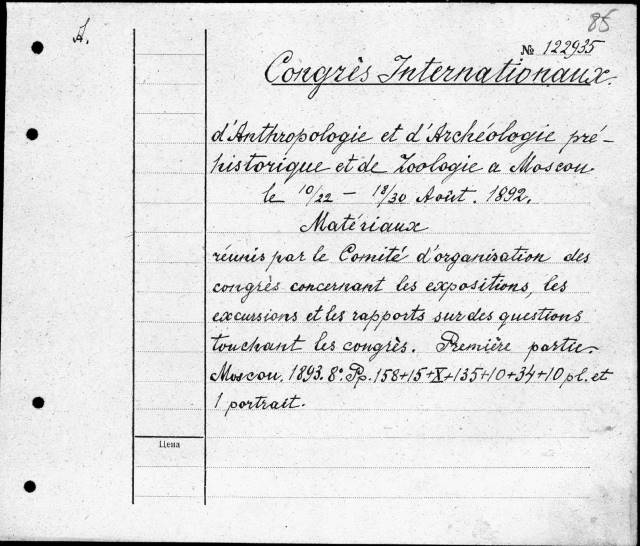 85
A.
№ 122935
Congrès Internationaux.
d'Anthropologie et d'Archéologie pré-
historique et de Zoologie a Moscou
le 10/22 – 18/30 Août. 1892.
Matériaux
réunis par le Comité d'organisation des
congrès concernant les expositions, les
excursions et les rapports sur des questions
touchant les congrès. Première partie.
Moscou, 1893. 8°. Pp. 158+15+X+135+10+34+10 pl. et
1 portrait.
Цена